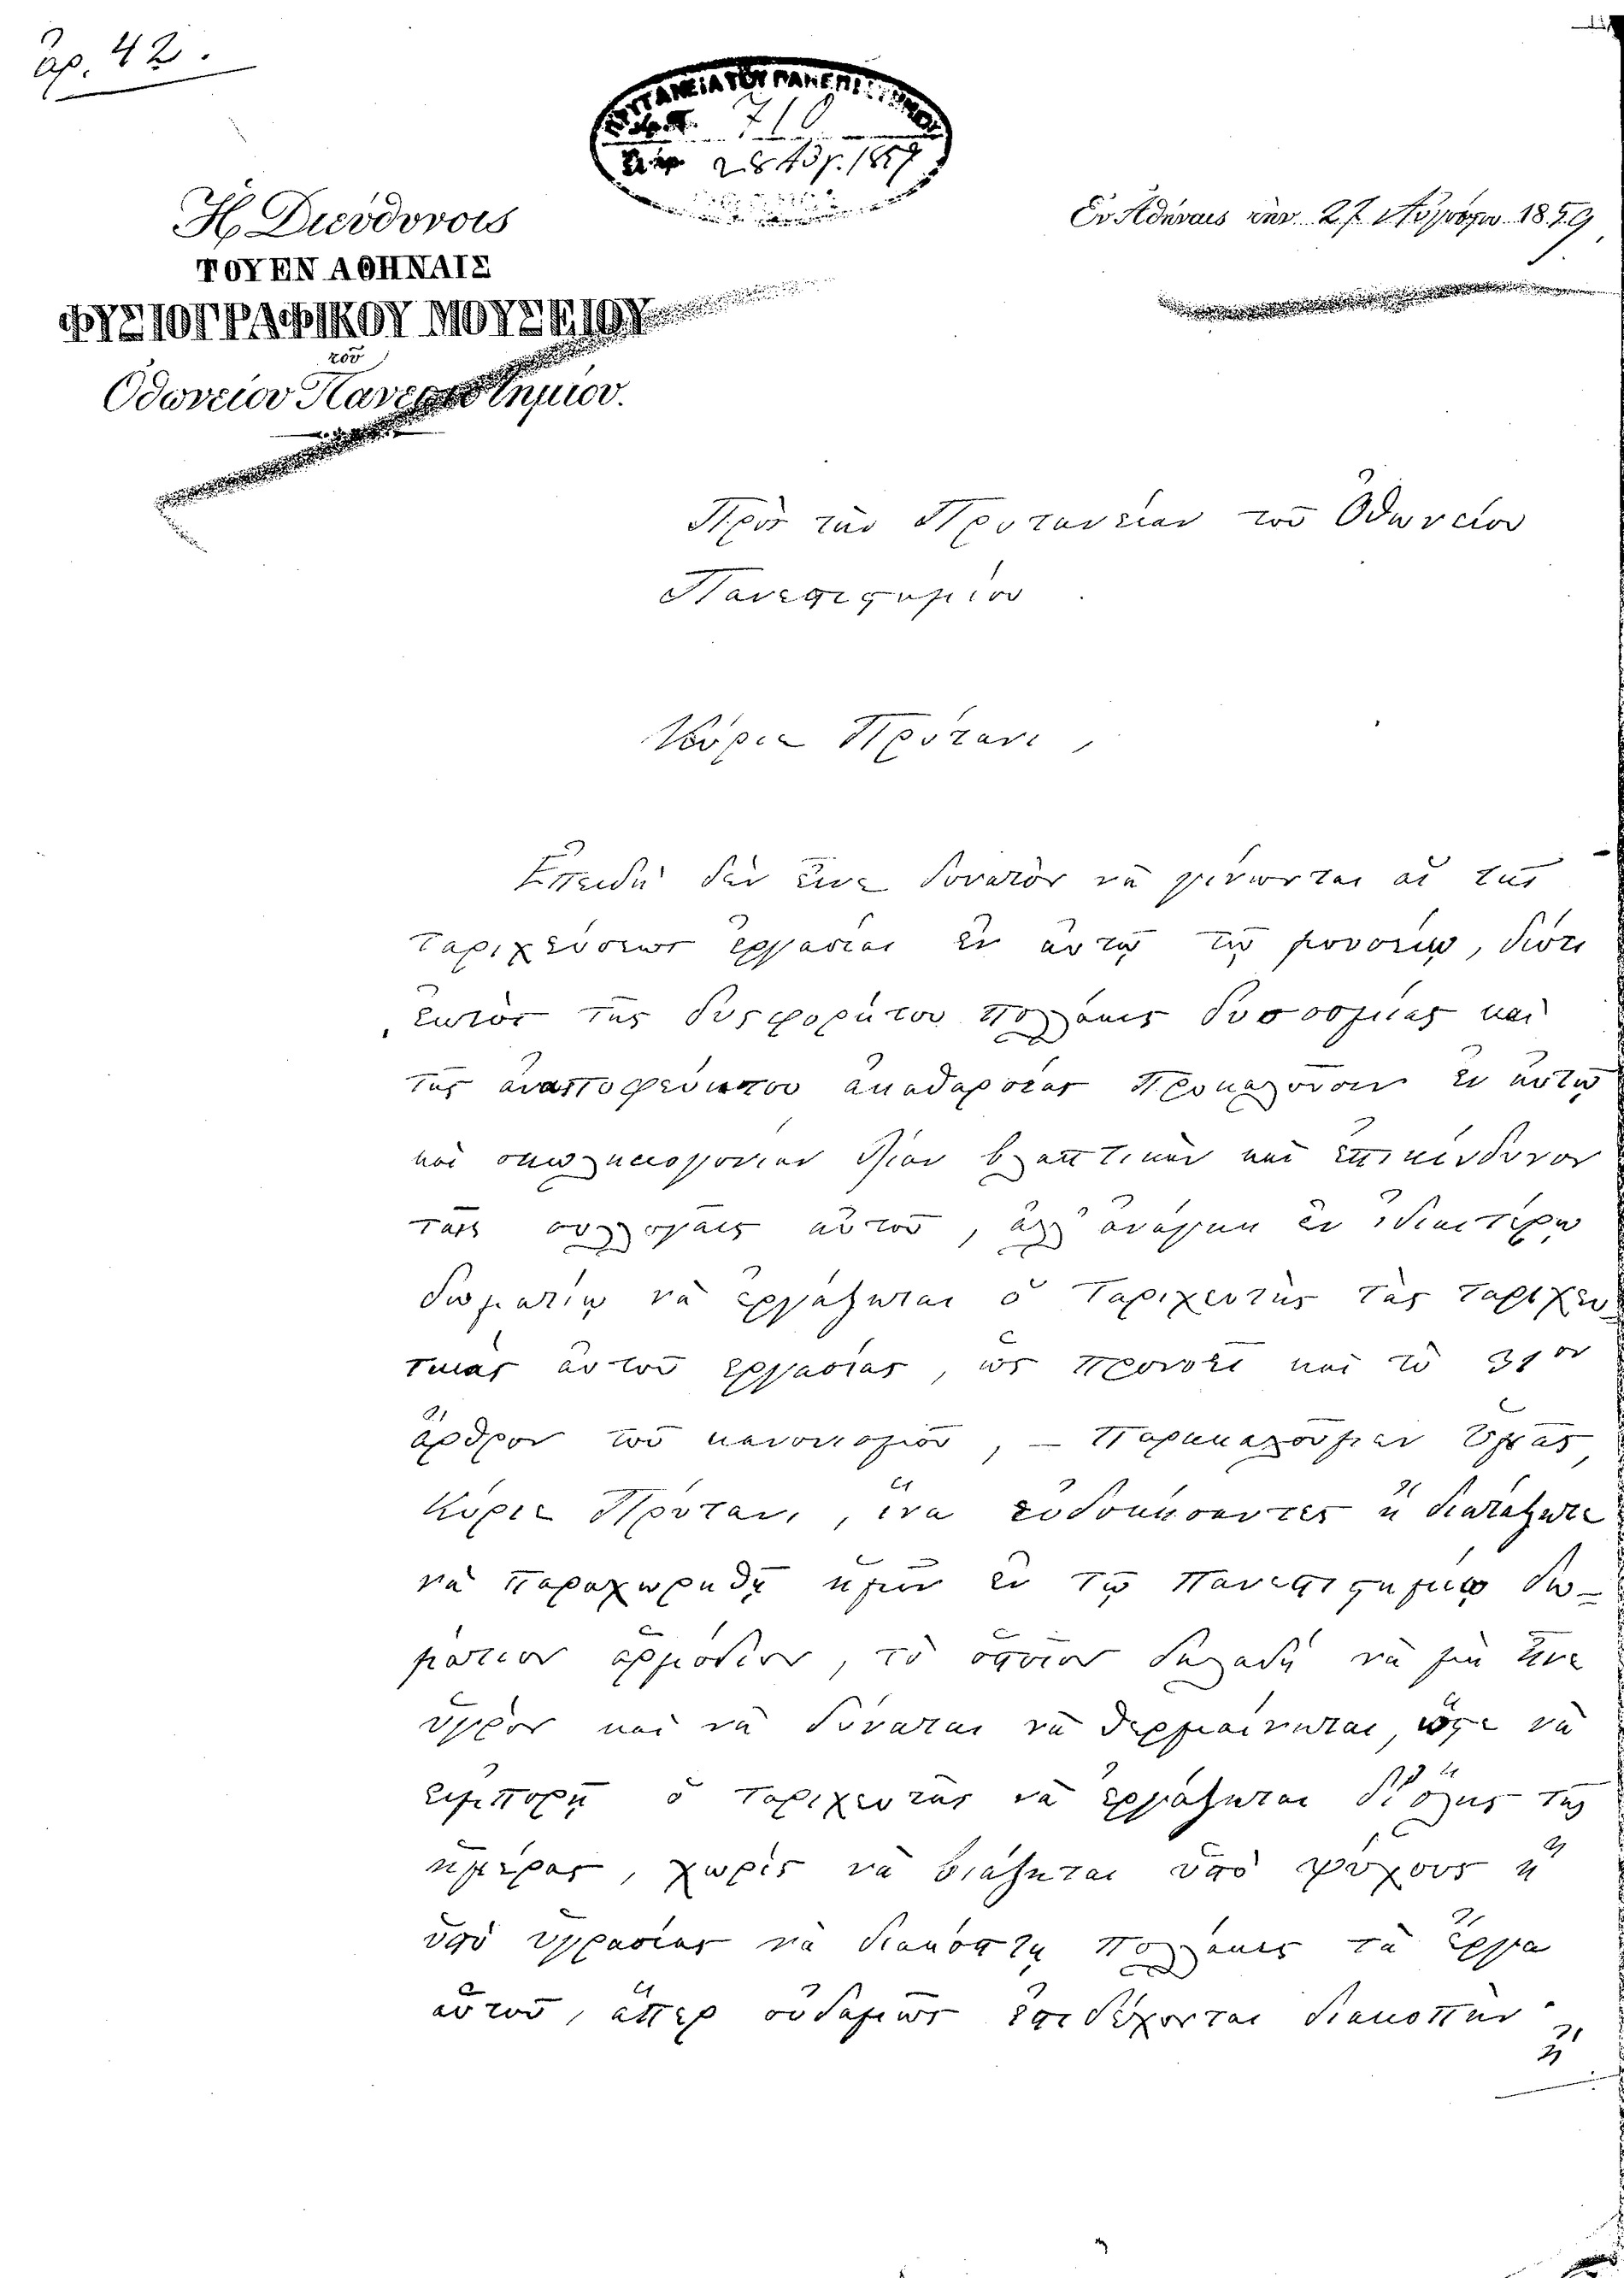 ἀρ. 42.
ΠΡΥΤΑΝΕΙΑ ΤΟΥ ΠΑΝΕΠΙΣΤΗΜΙΟΥ
710
28 Αὐγ. 1859
Ἡ Διεύθυνσις
ΤΟΥ ΕΝ ΑΘΗΝΑΙΣ
ΦΥΣΙΟΓΡΑΦΙΚΟΥ ΜΟΥΣΕΙΟΥ
τοῦ
Ὀθωνείου Πανεπιστημίου.
Ἐν Ἀθήναις τὴν 27 Αὐγούστου 1859
Πρὸς τὴν Πρυτανείαν τοῦ Ὀθωνείου
Πανεπιςημίου
Κύριε Πρύτανι,
Ἐπειδὴ δὲν εἶνε δυνατὸν νὰ γίνωνται αἱ τῆς
ταριχεύσεως ἐργασίαι ἐν αὐτῷ τῷ μουσείῳ, διότι
ἐκτὸς τῆς δυςφορήτου πολλάκις δυσοσμίας καὶ
τῆς ἀναποφεύκτου ἀκαθαρσίας προκαλοῦσιν ἐν αὐτῷ
καὶ σκωληκογονίαν λίαν βλαπτικὴν καὶ ἐπικίνδυνον
ταῖς συλλογαῖς αὐτοῦ, ἀλλ' ἀνάγκη ἐν ἰδιαιτέρῳ
δωματίῳ νὰ ἐργάζηται ὁ ταριχευτὴς τὰς ταριχευ-
τικὰς αὐτοῦ ἐργασίας, ὡς προνοεῖ καὶ τὸ 31ον
ἄρθρον τοῦ κανονισμοῦ, — Παρακαλοῦμεν Ὑμᾶς,
Κύριε Πρύτανι, ἵνα εὐδοκήσαντες ἢ διατάξητε
νὰ παραχωρηθῇ ἡμῖν ἐν τῷ Πανεπιςημίῳ δω-
μάτιον ἁρμόδιον, τὸ ὁποῖον δηλαδὴ νὰ μὴ ἦνε
ὑγρὸν καὶ νὰ δύναται νὰ θερμαίνηται, ὥςε νὰ
ἐμπορῇ ὁ ταριχευτὴς νὰ ἐργάζηται δι' ὅλης τῆς
ἡμέρας, χωρὶς νὰ βιάζηται ὑπὸ ψύχους ἢ
ὑπὸ ὑγρασίας νὰ διακόπτῃ πολλάκις τὰ ἔργα
αὑτοῦ, ἅπερ οὐδαμῶς ἐπιδέχονται διακοπὴν·
ἢ